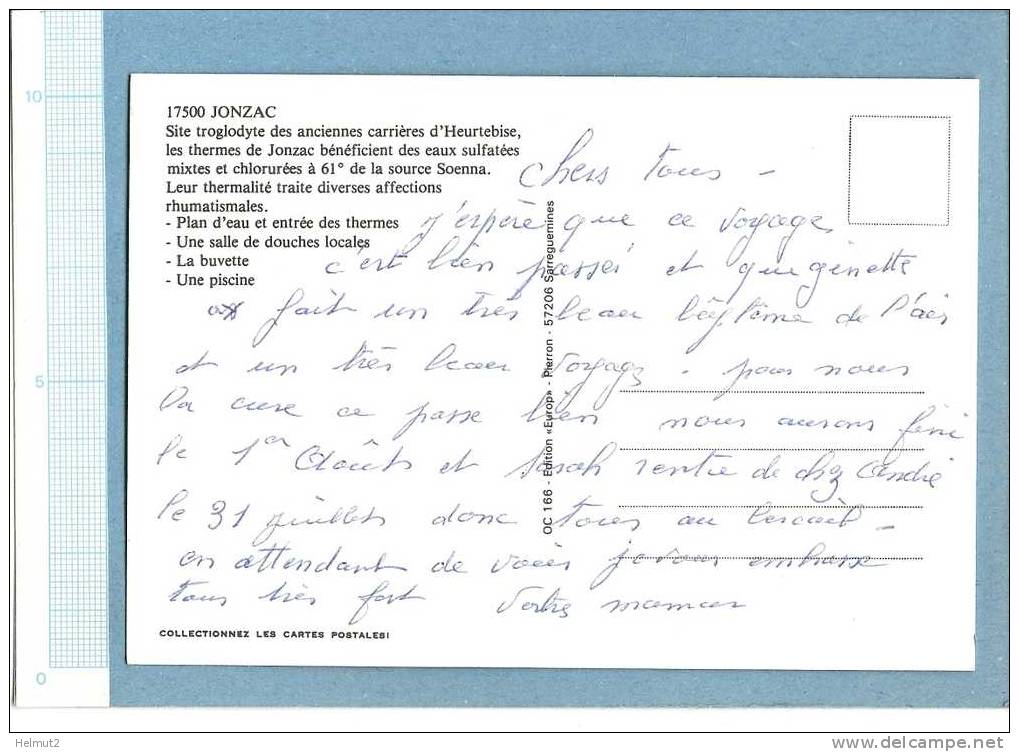 10
5
0
17500 JONZAC
Site troglodyte des anciennes carrières d'Heurtebise,
les thermes de Jonzac bénéficient des eaux sulfatées
mixtes et chlorurées à 61° de la source Soenna.
Leur thermalité traite diverses affections
rhumatismales.
- Plan d'eau et entrée des thermes
- Une salle de douches locales
- La buvette
- Une piscine
Chers tous -
j'espère que ce voyage
c'est bien passé et que ginette
fait un très beau bâptême de l'air
et un très beau voyage. pour nous
la cure ce passe bien nous aurons fini
le 1er Aoûts et sarah rentre de chez André
le 31 juillets donc tous au
en attendant de vous je vous embrasse
tous très fort votre maman
OC 166 - Edition «Europ» - Pierron - 57206 Sarreguemines
COLLECTIONNEZ LES CARTES POSTALES!
Helmut2
www.delcampe.net